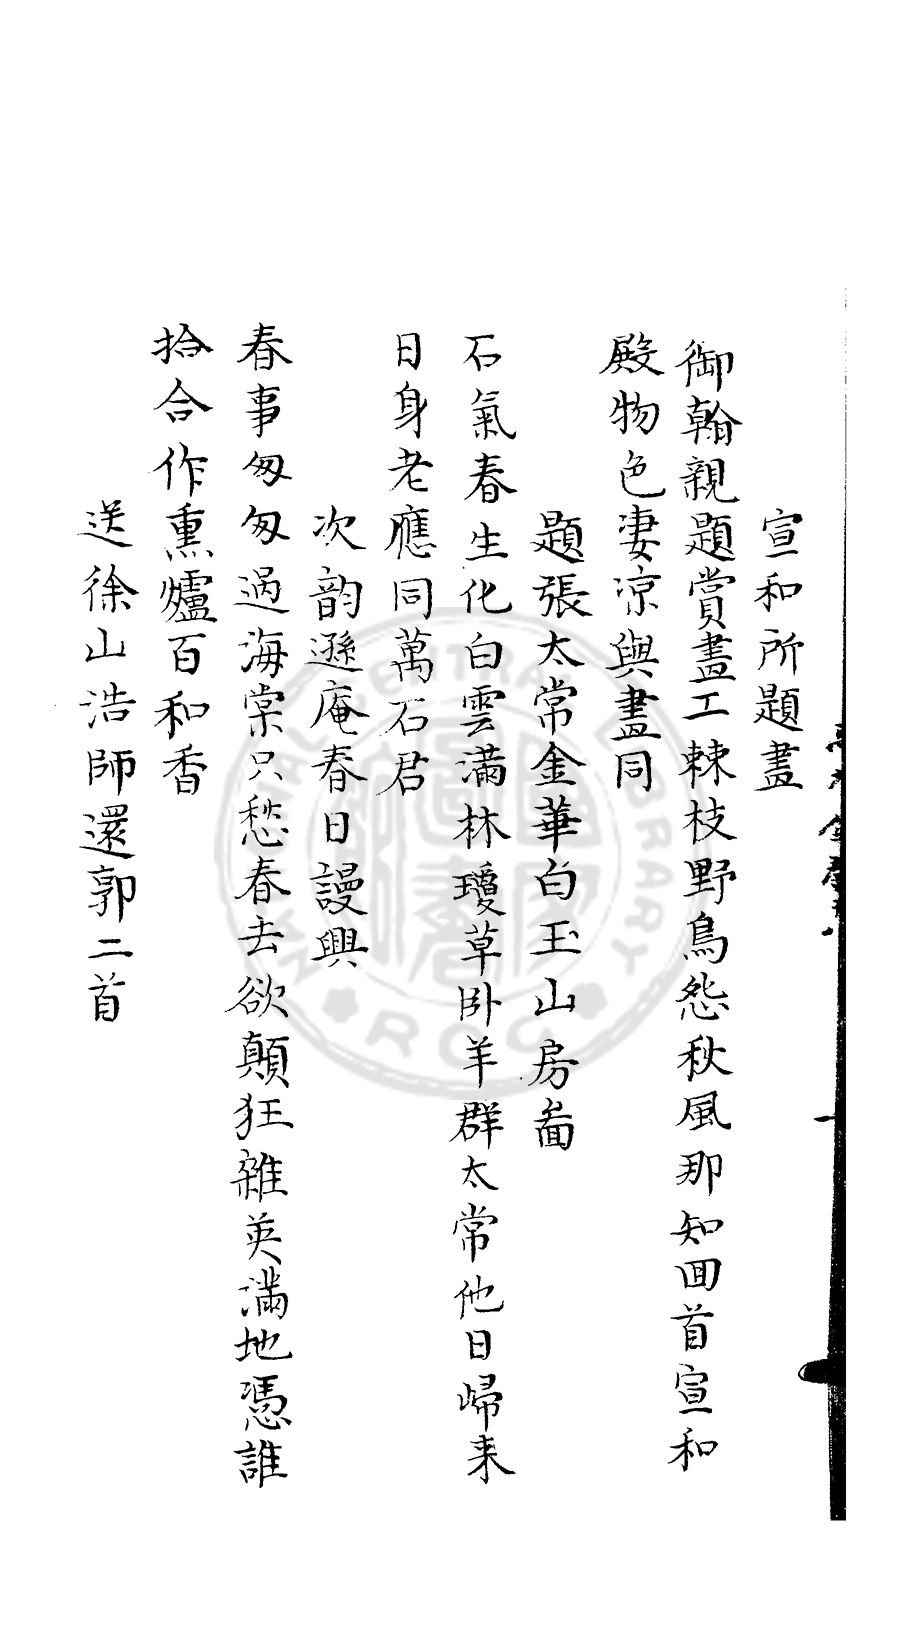 宣和所題畫
御翰親題賞畫工棘枝野鳥怨秋風那知回首宣和
殿物色凄凉與畫同
題張太常金華白玉山房啚
石氣春生化白雲滿林瓊草卧羊群太常他日歸来
日身老應同萬石君
次韵遜庵春日謾興
春事匆匆過海棠只愁春去欲顛狂雜英滿地憑誰
拾合作熏爐百和香
送徐山浩師還郭二首
NATIONAL CENTRAL LIBRARY
R.O.C.